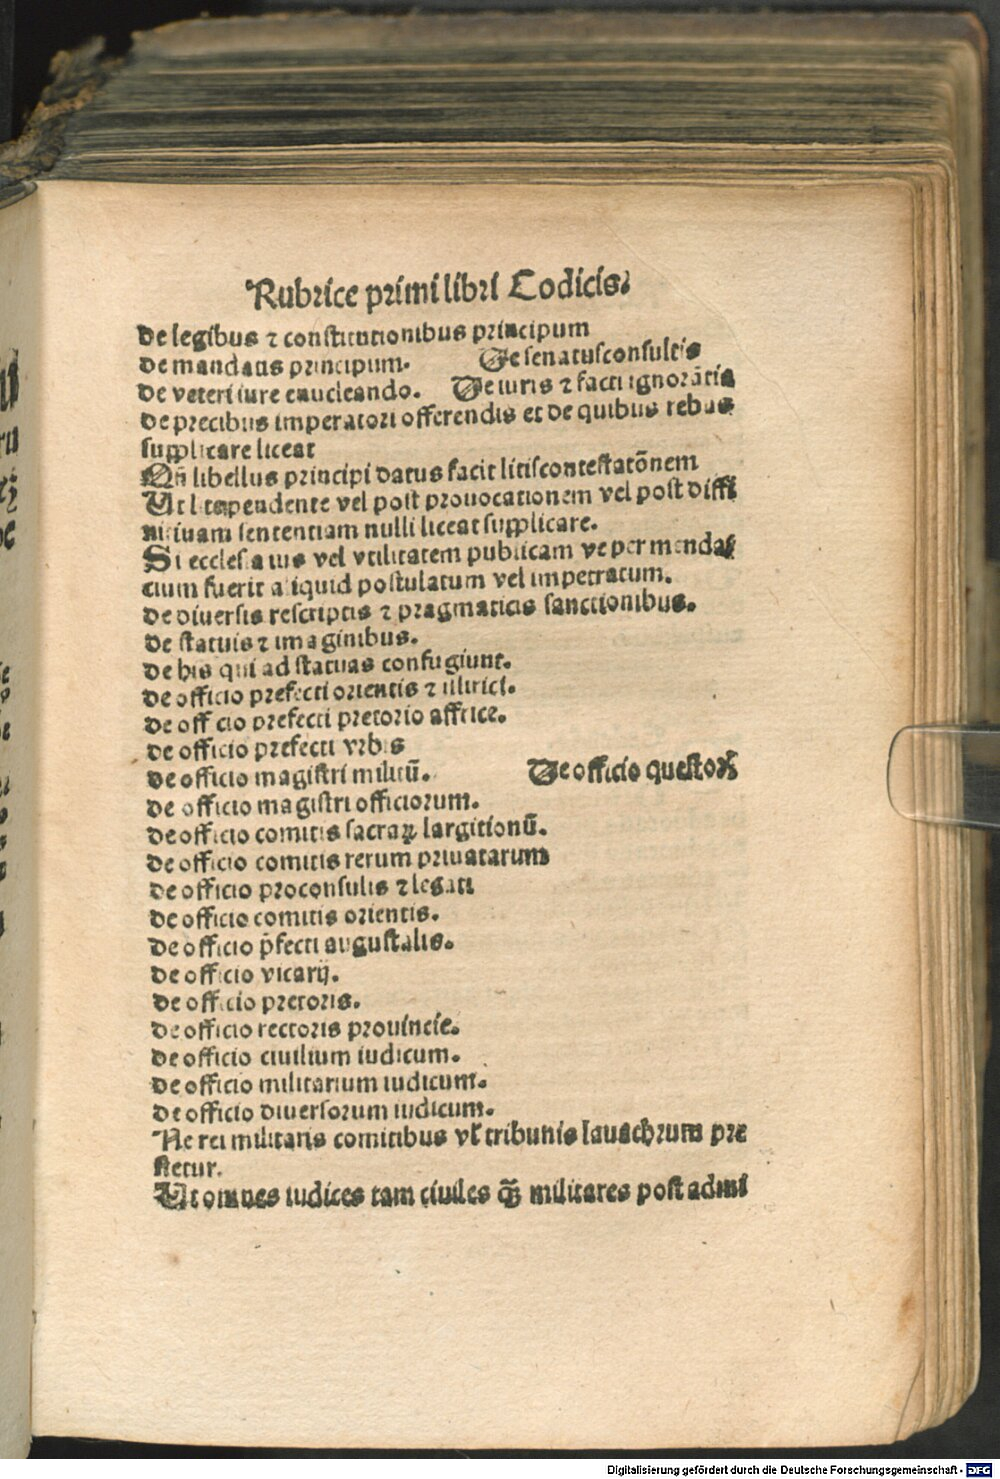 Rubrice primi libri Codicis.
De legibus ⁊ constitutionibus principum
De mandatis principum. De senatusconsultis
De veteri iure enucleando. De iuris ⁊ facti ignorãtia
De precibus imperatori offerendis et de quibus rebus
supplicare liceat
Qñ libellus principi datus facit litiscontestatõnem
Ut lite pendente vel post prouocationem vel post diffi
nitiuam sententiam nulli liceat supplicare.
Si ecclesiasticus vel vtilitatem publicam ve per menda
cium fuerit aliquid postulatum vel impetratum.
De diuersis rescriptis ⁊ pragmaticis sanctionibus.
De statuis ⁊ imaginibus.
De his qui ad statuas confugiunt.
De officio prefecti orientis ⁊ illirici.
De officio prefecti pretorio affrice.
De officio prefecti vrbis
De officio magistri militũ. De officio questoꝝ
De officio magistri officiorum.
De officio comitis sacraꝝ largitionũ.
De officio comitis rerum priuatarum
De officio proconsulis ⁊ legati
De officio comitis orientis.
De officio p̄fecti augustalis.
De officio vicarij.
De officio pretoris.
De officio rectoris prouincie.
De officio ciuilium iudicum.
De officio militarium iudicum.
De officio diuersorum iudicum.
Ne rei militaris comitibus vƚ tribunis lauachrum pre
stetur.
Ut omnes iudices tam ciuiles q̃ȝ militares post admi
Digitalisierung gefördert durch die Deutsche Forschungsgemeinschaft - DFG